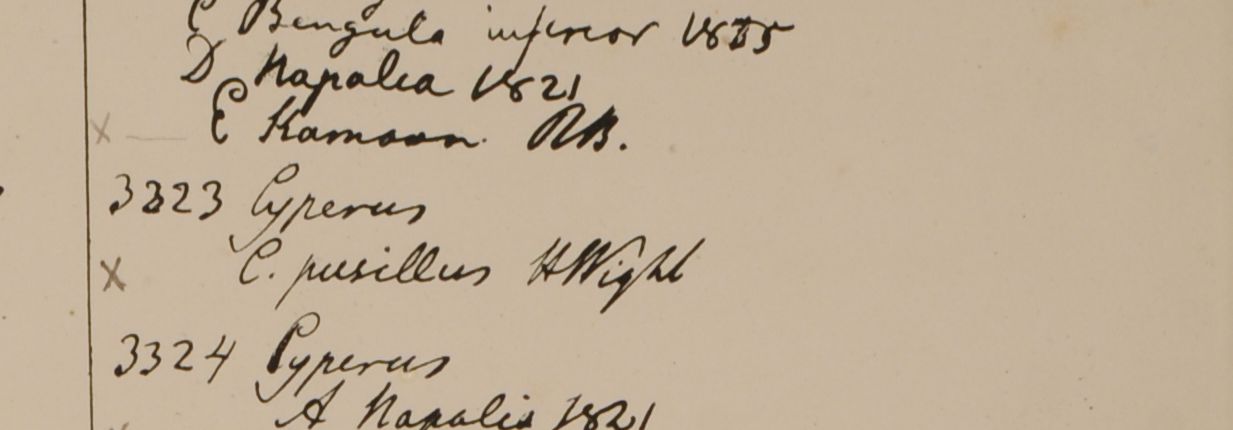 C Bengala inferior 1825
D Napalia 1821
X — E Kamaon. RB.
3323 Cyperus
X C. pusillus HWight
3324 Cyperus
A Napalia 1821